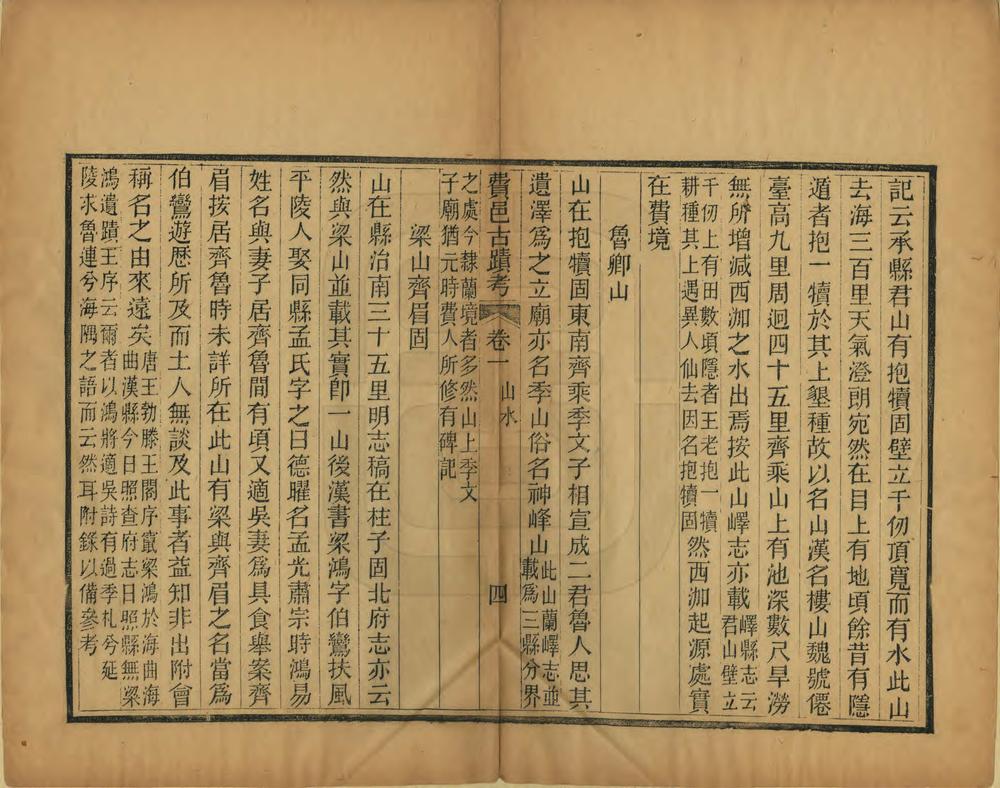 記云承縣君山有抱犢固壁立千仞頂寬而有水此山
去海三百里天氣澄朗宛然在目上有地頃餘昔有隱
遁者抱一犢於其上墾種故以名山漢名樓山魏號僊
臺高九里周迴四十五里齊乘山上有池深數尺旱澇
無所增減西泇之水出焉按此山嶧志亦載嶧縣志云君山壁立
千仞上有田數頃隱者王老抱一犢耕種其上遇異人仙去因名抱犢固然西泇起源處實
在費境
魯卿山
山在抱犢固東南齊乘季文子相宣成二君魯人思其
遺澤爲之立廟亦名季山俗名神峰山此山蘭嶧志並載爲三縣分界
費邑古蹟考 卷一 山水 四
之處今隸蘭境者多然山上季文
子廟猶元時費人所修有碑記
梁山齊眉固
山在縣治南三十五里明志稿在柱子固北府志亦云
然與梁山並載其實卽一山後漢書梁鴻字伯鸞扶風
平陵人娶同縣孟氏字之曰德曜名孟光肅宗時鴻易
姓名與妻子居齊魯間有頃又適吳妻爲具食舉案齊
眉按居齊魯時未詳所在此山有梁與齊眉之名當爲
伯鸞遊歷所及而土人無談及此事者益知非出附會
稱名之由來遠矣唐王勃滕王閣序竄梁鴻於海曲海曲漢縣今日照查府志日照縣無梁
鴻遺蹟王序云爾者以鴻將適吳詩有過季札兮延
陵求魯連兮海隅之語而云然耳附錄以備參考